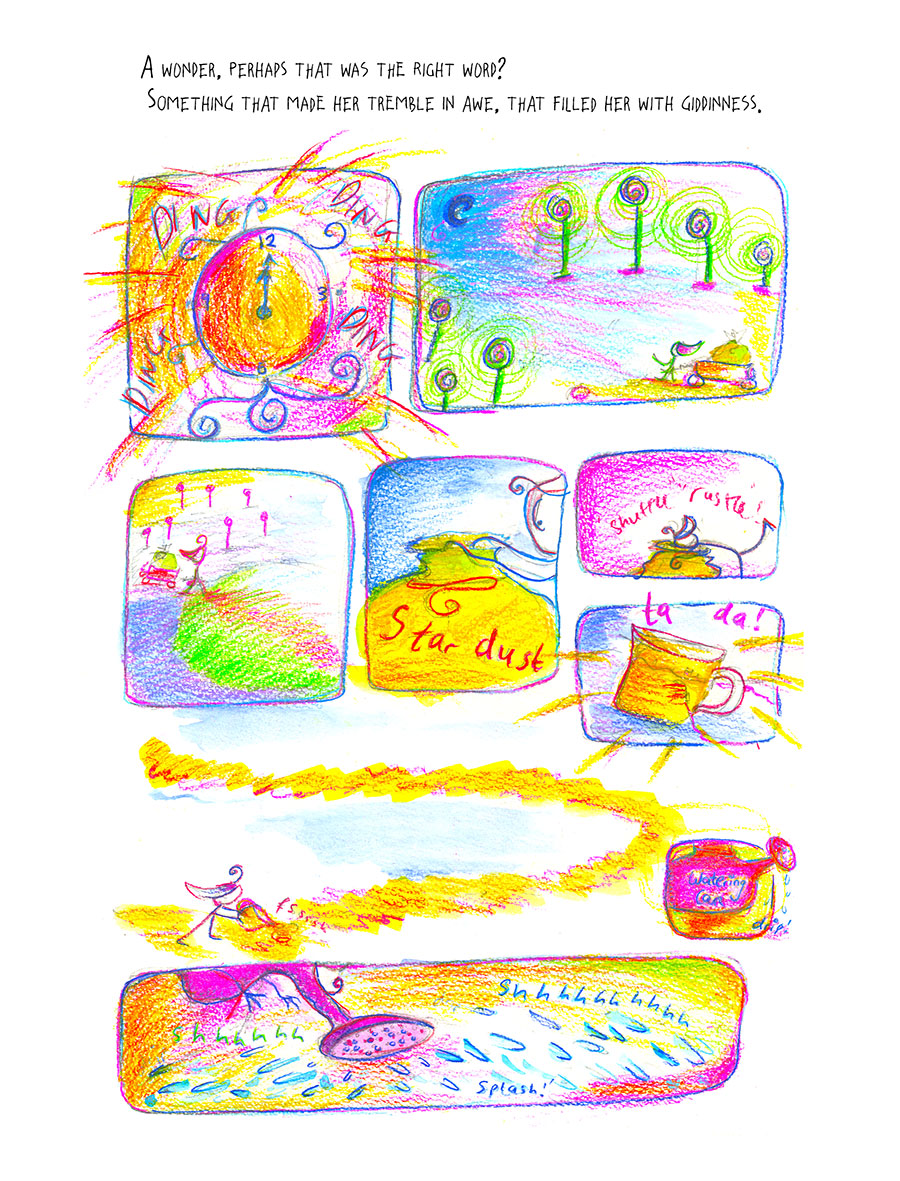 A WONDER, PERHAPS THAT WAS THE RIGHT WORD?
SOMETHING THAT MADE HER TREMBLE IN AWE, THAT FILLED HER WITH GIDDINNESS.
DING
DING
12
3
9
DING
DING
Star dust
shuffle rustle!
ta da!
Watering
Can
fsssss
drip!
Shhhhhhhhh
shhhhhh
Splash!